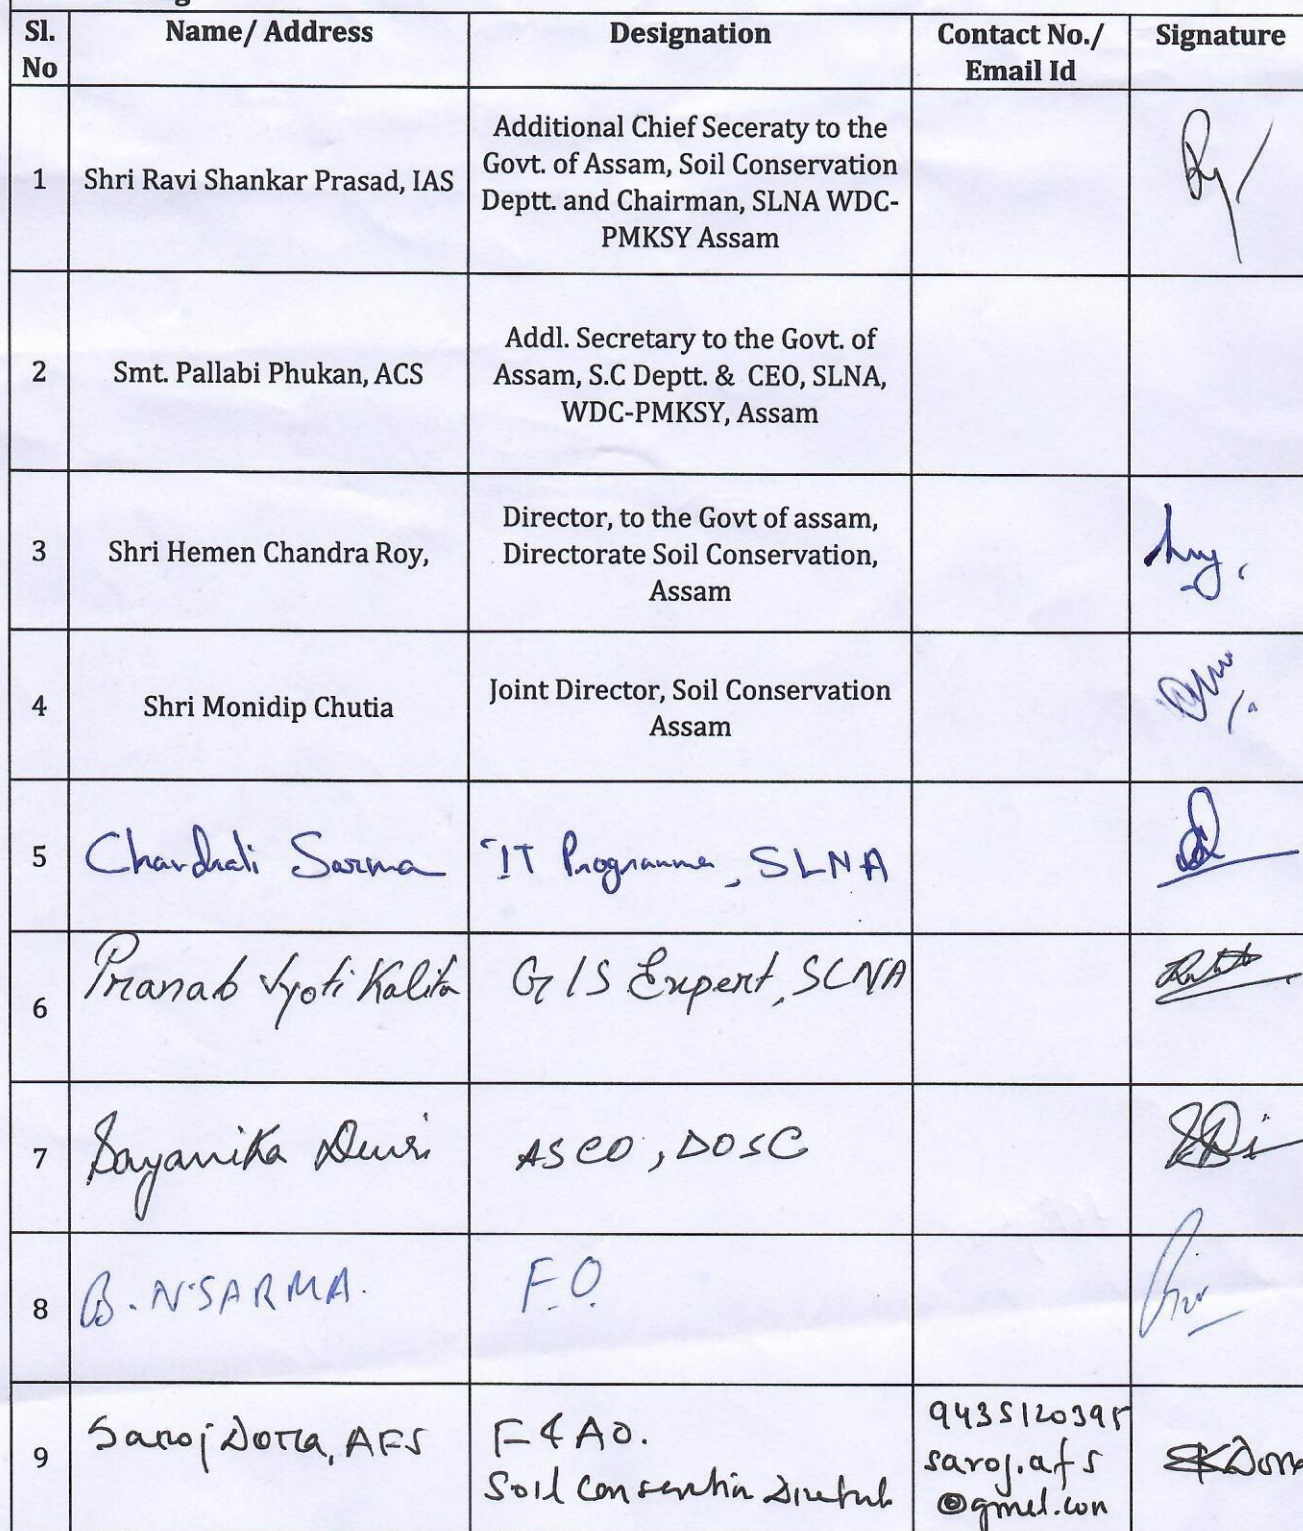 Sl. No
Name/ Address
Designation
Contact No./ Email Id
Signature
1
Shri Ravi Shankar Prasad, IAS
Additional Chief Seceraty to the
Govt. of Assam, Soil Conservation
Deptt. and Chairman, SLNA WDC-
PMKSY Assam
2
Smt. Pallabi Phukan, ACS
Addl. Secretary to the Govt. of
Assam, S.C Deptt. & CEO, SLNA,
WDC-PMKSY, Assam
3
Shri Hemen Chandra Roy,
Director, to the Govt of assam,
Directorate Soil Conservation,
Assam
4
Shri Monidip Chutia
Joint Director, Soil Conservation
Assam
5
Sarma
IT Programme, SLNA
6
Pranab Jyoti Kalita
GIS Expert, SLNA
7
Sayanika
ASCO, DOSC
8
B. N. SARMA.
F.O.
9
Saroj Dorra, AFS
F & AO.
Soil
9435120395
saroj.afs
@gmel.con